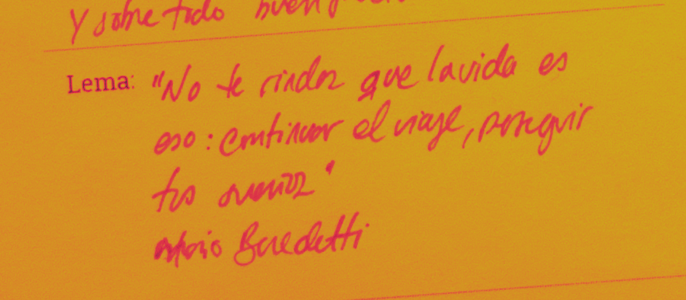 Y sobre todo buen
Lema: "No te rindas que la vida es
eso: continuar el viaje, perseguir
tus sueños"
Mario Benedetti